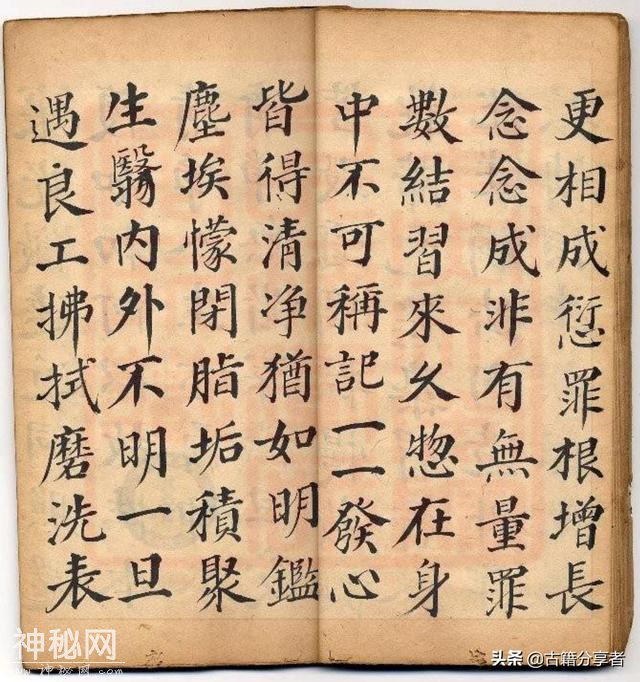 更相成愆罪根增長
念念成非有無量罪
數結習來久惣在身
中不可稱記一一發心
皆得清净猶如明鑑
塵埃懞閉脂垢積聚
生翳内外不明一旦
遇良工拂拭磨洗表
神秘网
头条 @古籍分享者